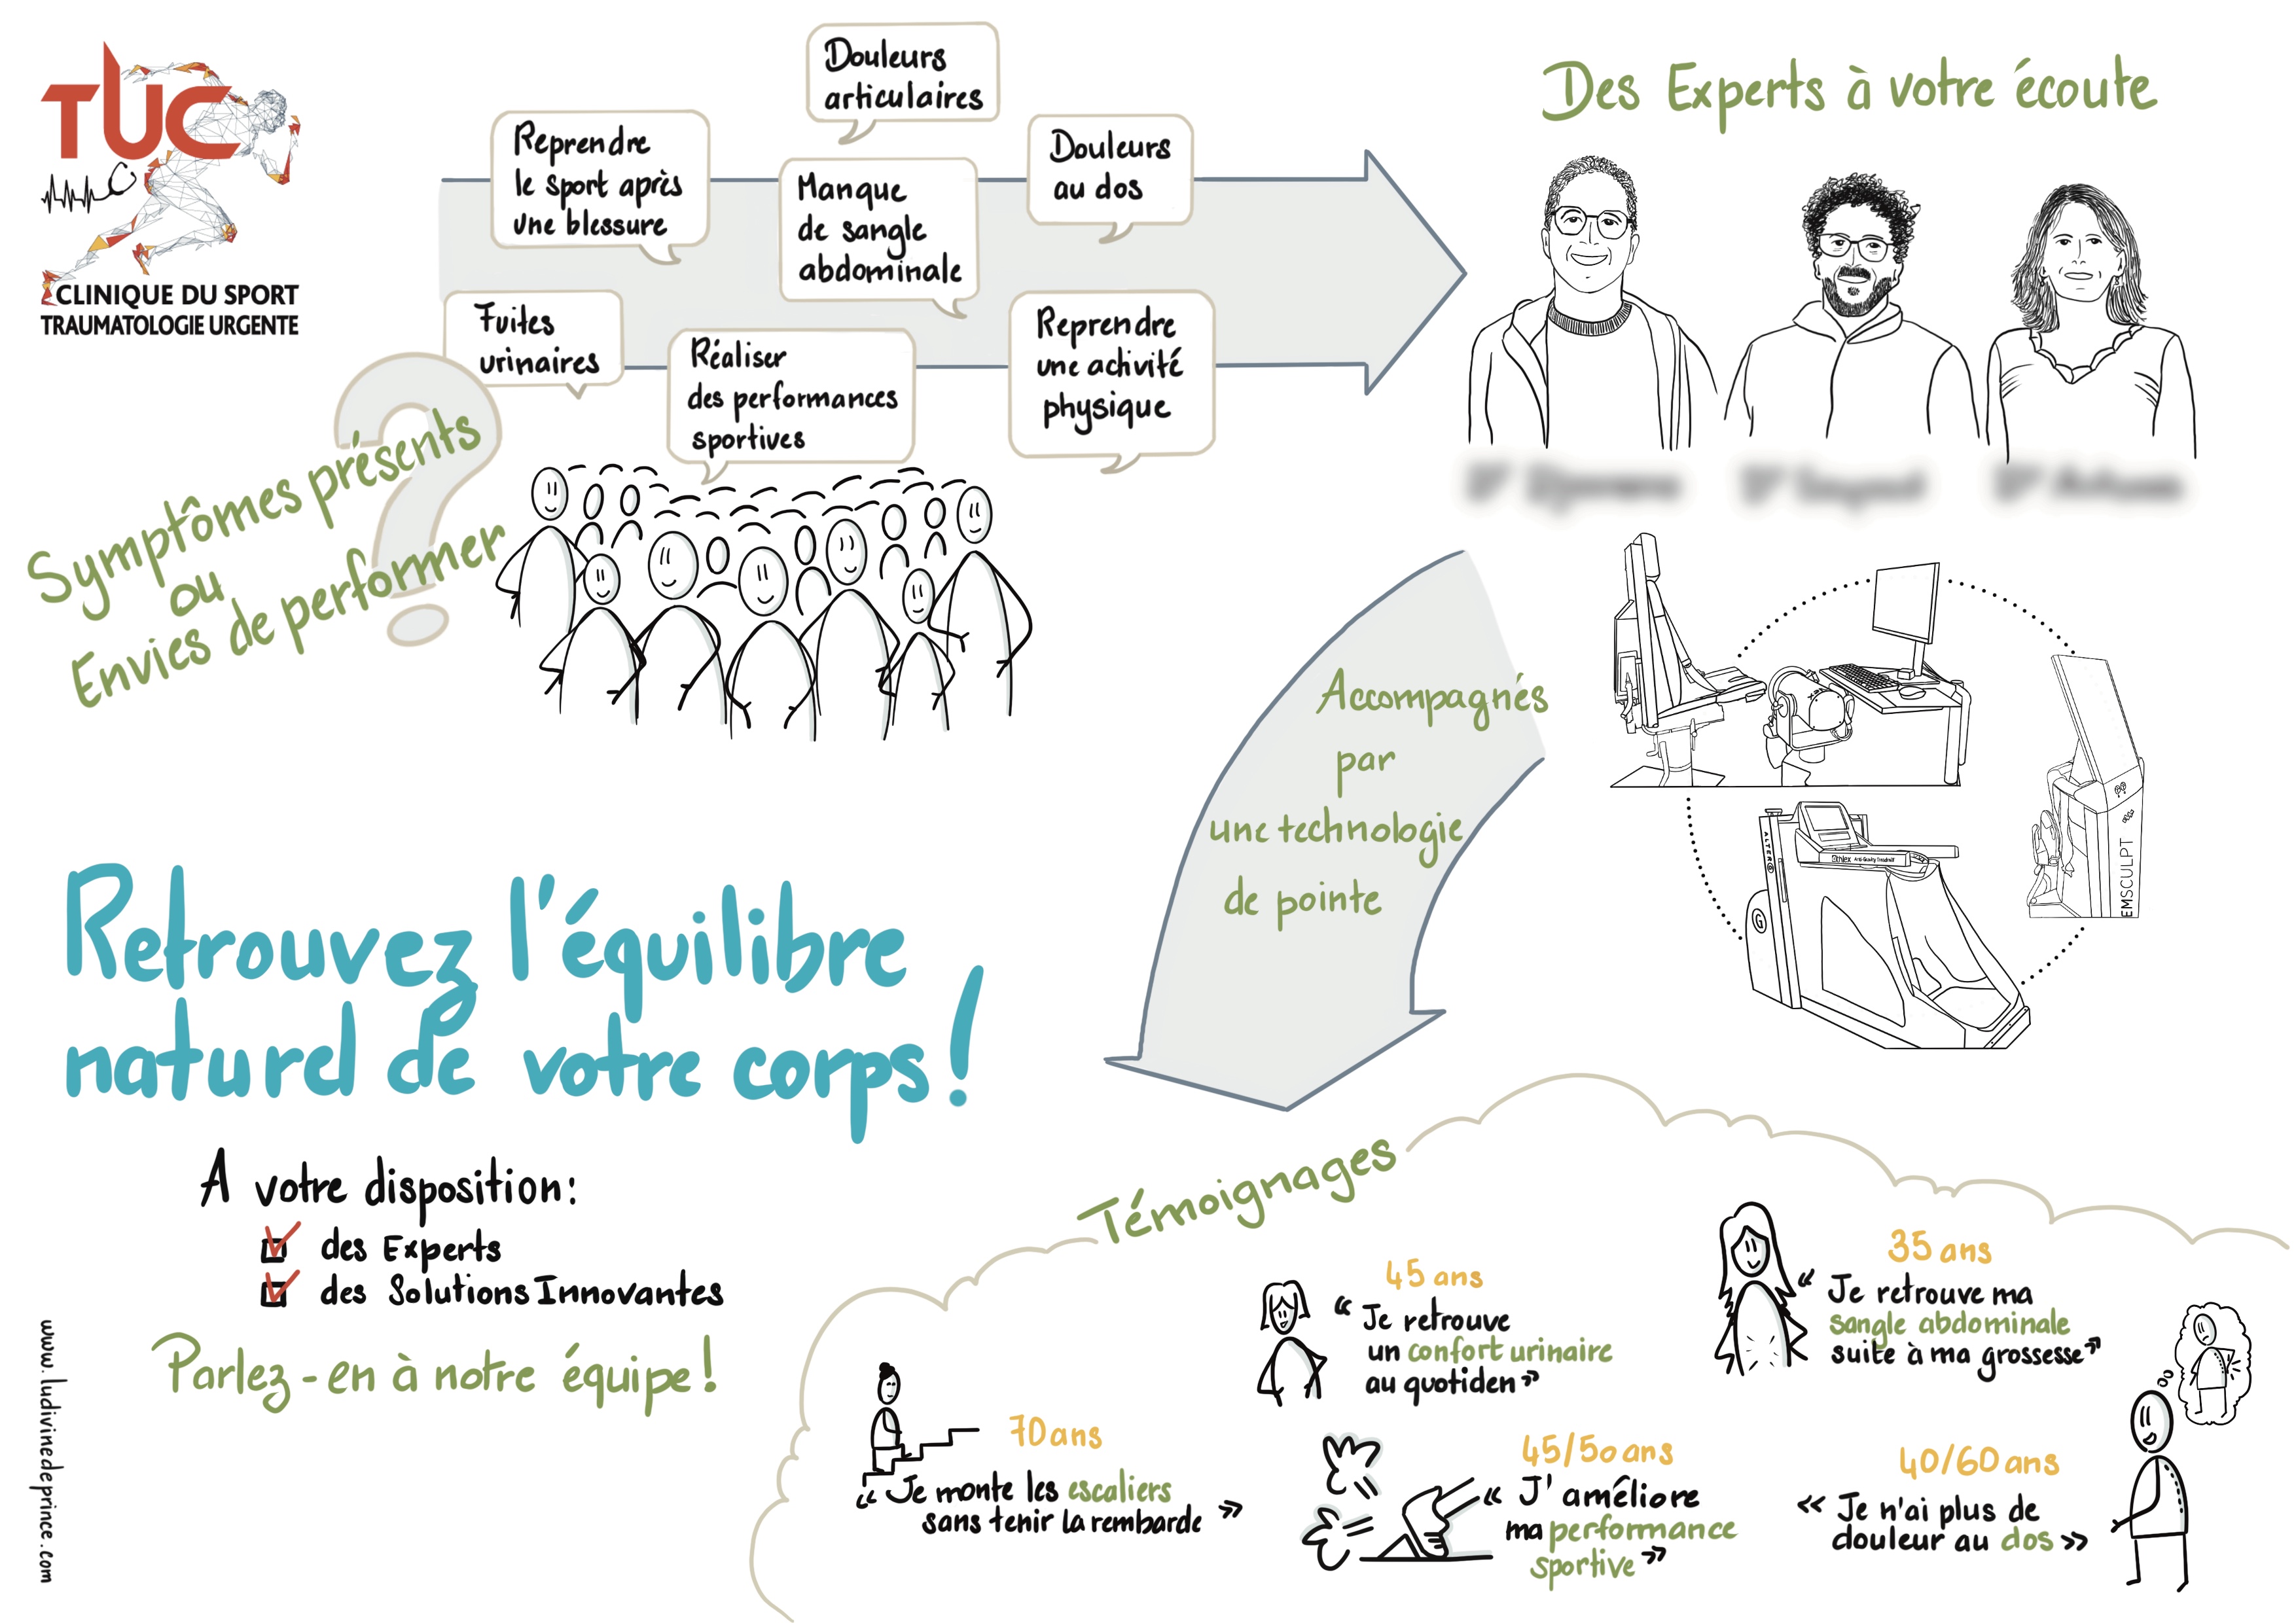 TUC
CLINIQUE DU SPORT
TRAUMATOLOGIE URGENTE
Douleurs
articulaires
Reprendre
le sport après
une blessure
Manque
de sangle
abdominale
Douleurs
au dos
Fuites
urinaires
Réaliser
des performances
sportives
Reprendre
une activité
physique
Symptômes présents
ou
Envies de performer
?
Des Experts à votre écoute
Accompagnés
par
une technologie
de pointe
EMSCULPT
ALTERG
Anti-Gravity Treadmill
G
Retrouvez l'équilibre
naturel de votre corps !
A votre disposition :
des Experts
des Solutions Innovantes
Parlez-en à notre équipe !
www.ludivinedeprince.com
Témoignages
45 ans
« Je retrouve
un confort urinaire
au quotiden »
35 ans
« Je retrouve ma
sangle abdominale
suite à ma grossesse »
70 ans
« Je monte les escaliers
sans tenir la rembarde »
45/50 ans
« J'améliore
ma performance
sportive »
40/60 ans
« Je n'ai plus de
douleur au dos »